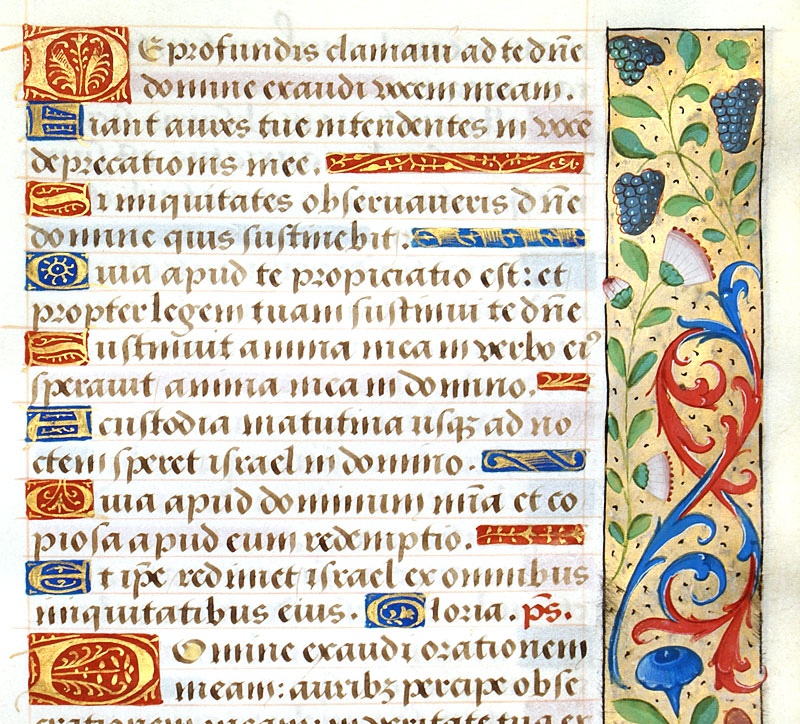 De profundis clamavi ad te dñe
domine exaudi vocem meam.
Fiant aures tue intendentes in vocē
deprecationis mee.
Si iniquitates observaveris dñe
domine quis sustinebit:
Quia apud te propiciatio est: et
propter legem tuam sustinui te dñe
Sustinuit anima mea in verbo eiꝰ
speravit anima mea in domino.
A custodia matutina usqꝫ ad no
ctem speret israel in domino.
Quia apud dominum mīa et co
piosa apud eum redemptio.
Et ipẽ redimet israel ex omnibus
iniquitatibus eius. Gloria. pš.
Domine exaudi orationem
meam: auribꝫ percipe obse
crationem meam: in veritate tua ex